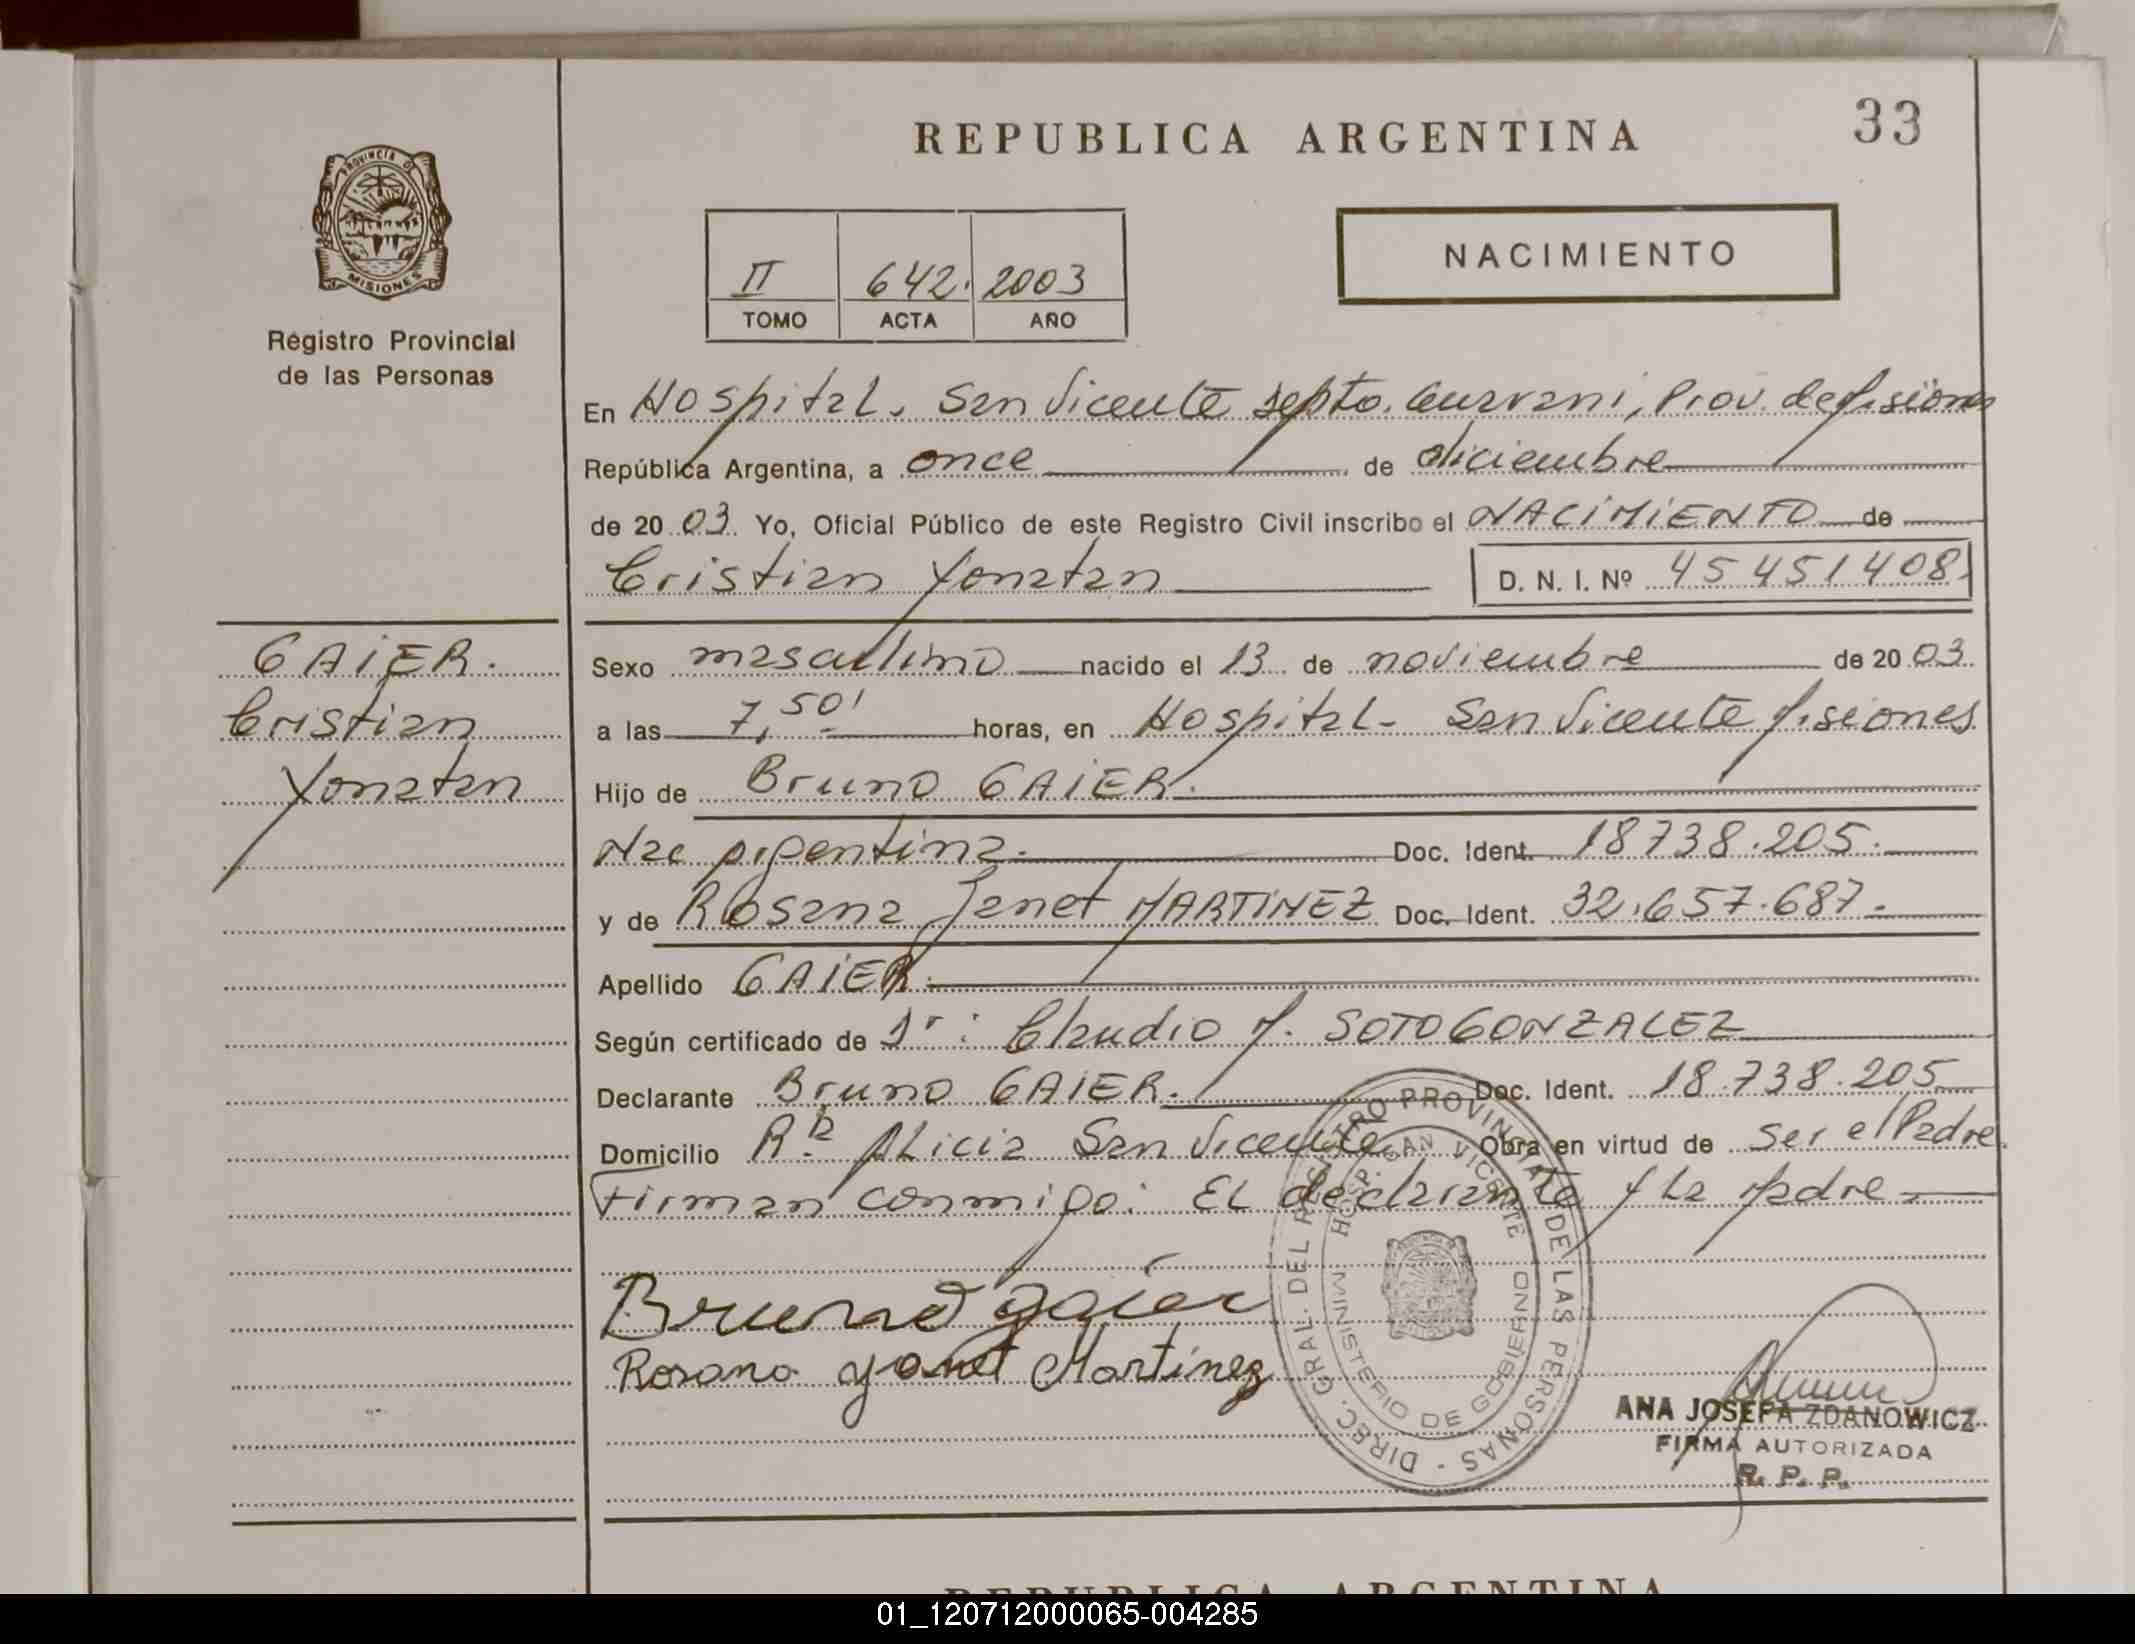 33
REPUBLICA ARGENTINA
PROVINCIA DE
MISIONES
Registro Provincial
de las Personas
NACIMIENTO
II 642. 2003
TOMO ACTA AÑO
En Hospital. San Vicente Depto. Guarani, Prov. de Misiones
República Argentina, a once de diciembre
de 20 03. Yo, Oficial Público de este Registro Civil inscribo el NACIMIENTO de
Cristian Yonatan D. N. I. Nº 45451408.
GAIER.
Cristian
Yonatan
Sexo masculino nacido el 13 de noviembre de 20 03.
a las 7,50' horas, en Hospital- San Vicente Misiones
Hijo de Bruno GAIER.
Nac Argentina. Doc. Ident. 18738.205.
y de Rosana Janet MARTINEZ Doc. Ident. 32.657.687.-
Apellido GAIER.
Según certificado de Dr: Claudio M. SOTO GONZALEZ
Declarante Bruno GAIER. Doc. Ident. 18.738.205
Domicilio Ra. Alicia San Vicente Obra en virtud de ser el Padre.
Firman conmigo: EL declarante y La Madre.-
Bruno gaier
Rosana yanet Martinez
DIREC. GRAL. DEL REGISTRO PROVINCIAL DE LAS PERSONAS -
HOSP. SAN VICENTE
MINISTERIO DE GOBIERNO
ANA JOSEFA ZDANOWICZ
FIRMA AUTORIZADA
R. P. P.
REPUBLICA ARGENTINA
01_120712000065-004285